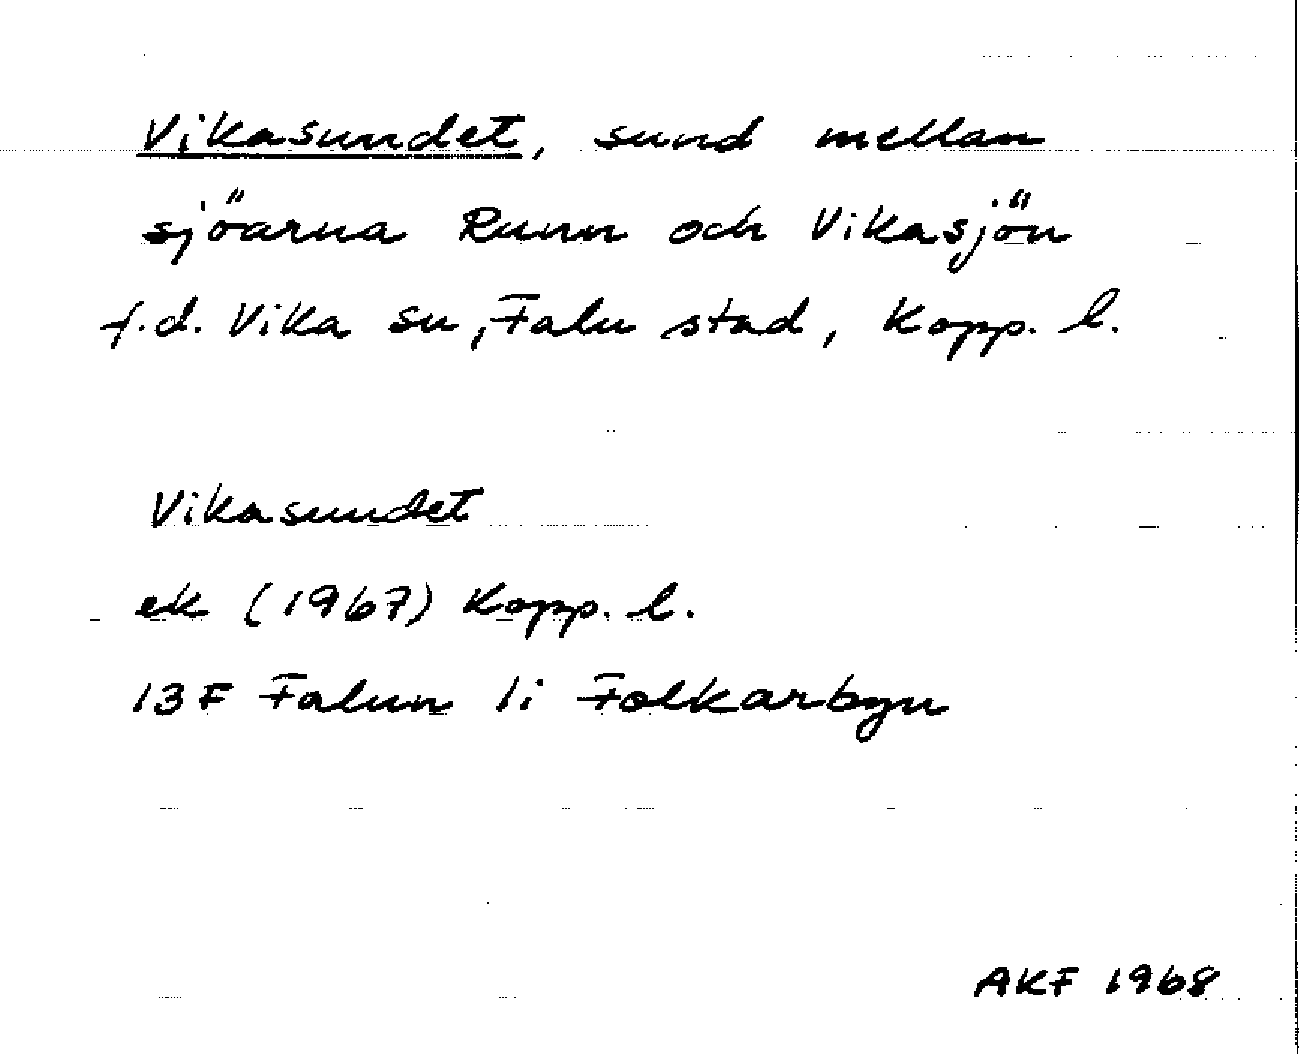 Vikasundet, sund mellan
sjöarna Runn och Vikasjön
f.d. Vika sn, Falu stad, Kopp. l.
Vikasundet
ek (1967) Kopp. l.
13F Falun 1i Folkarbyn
AKF 1968